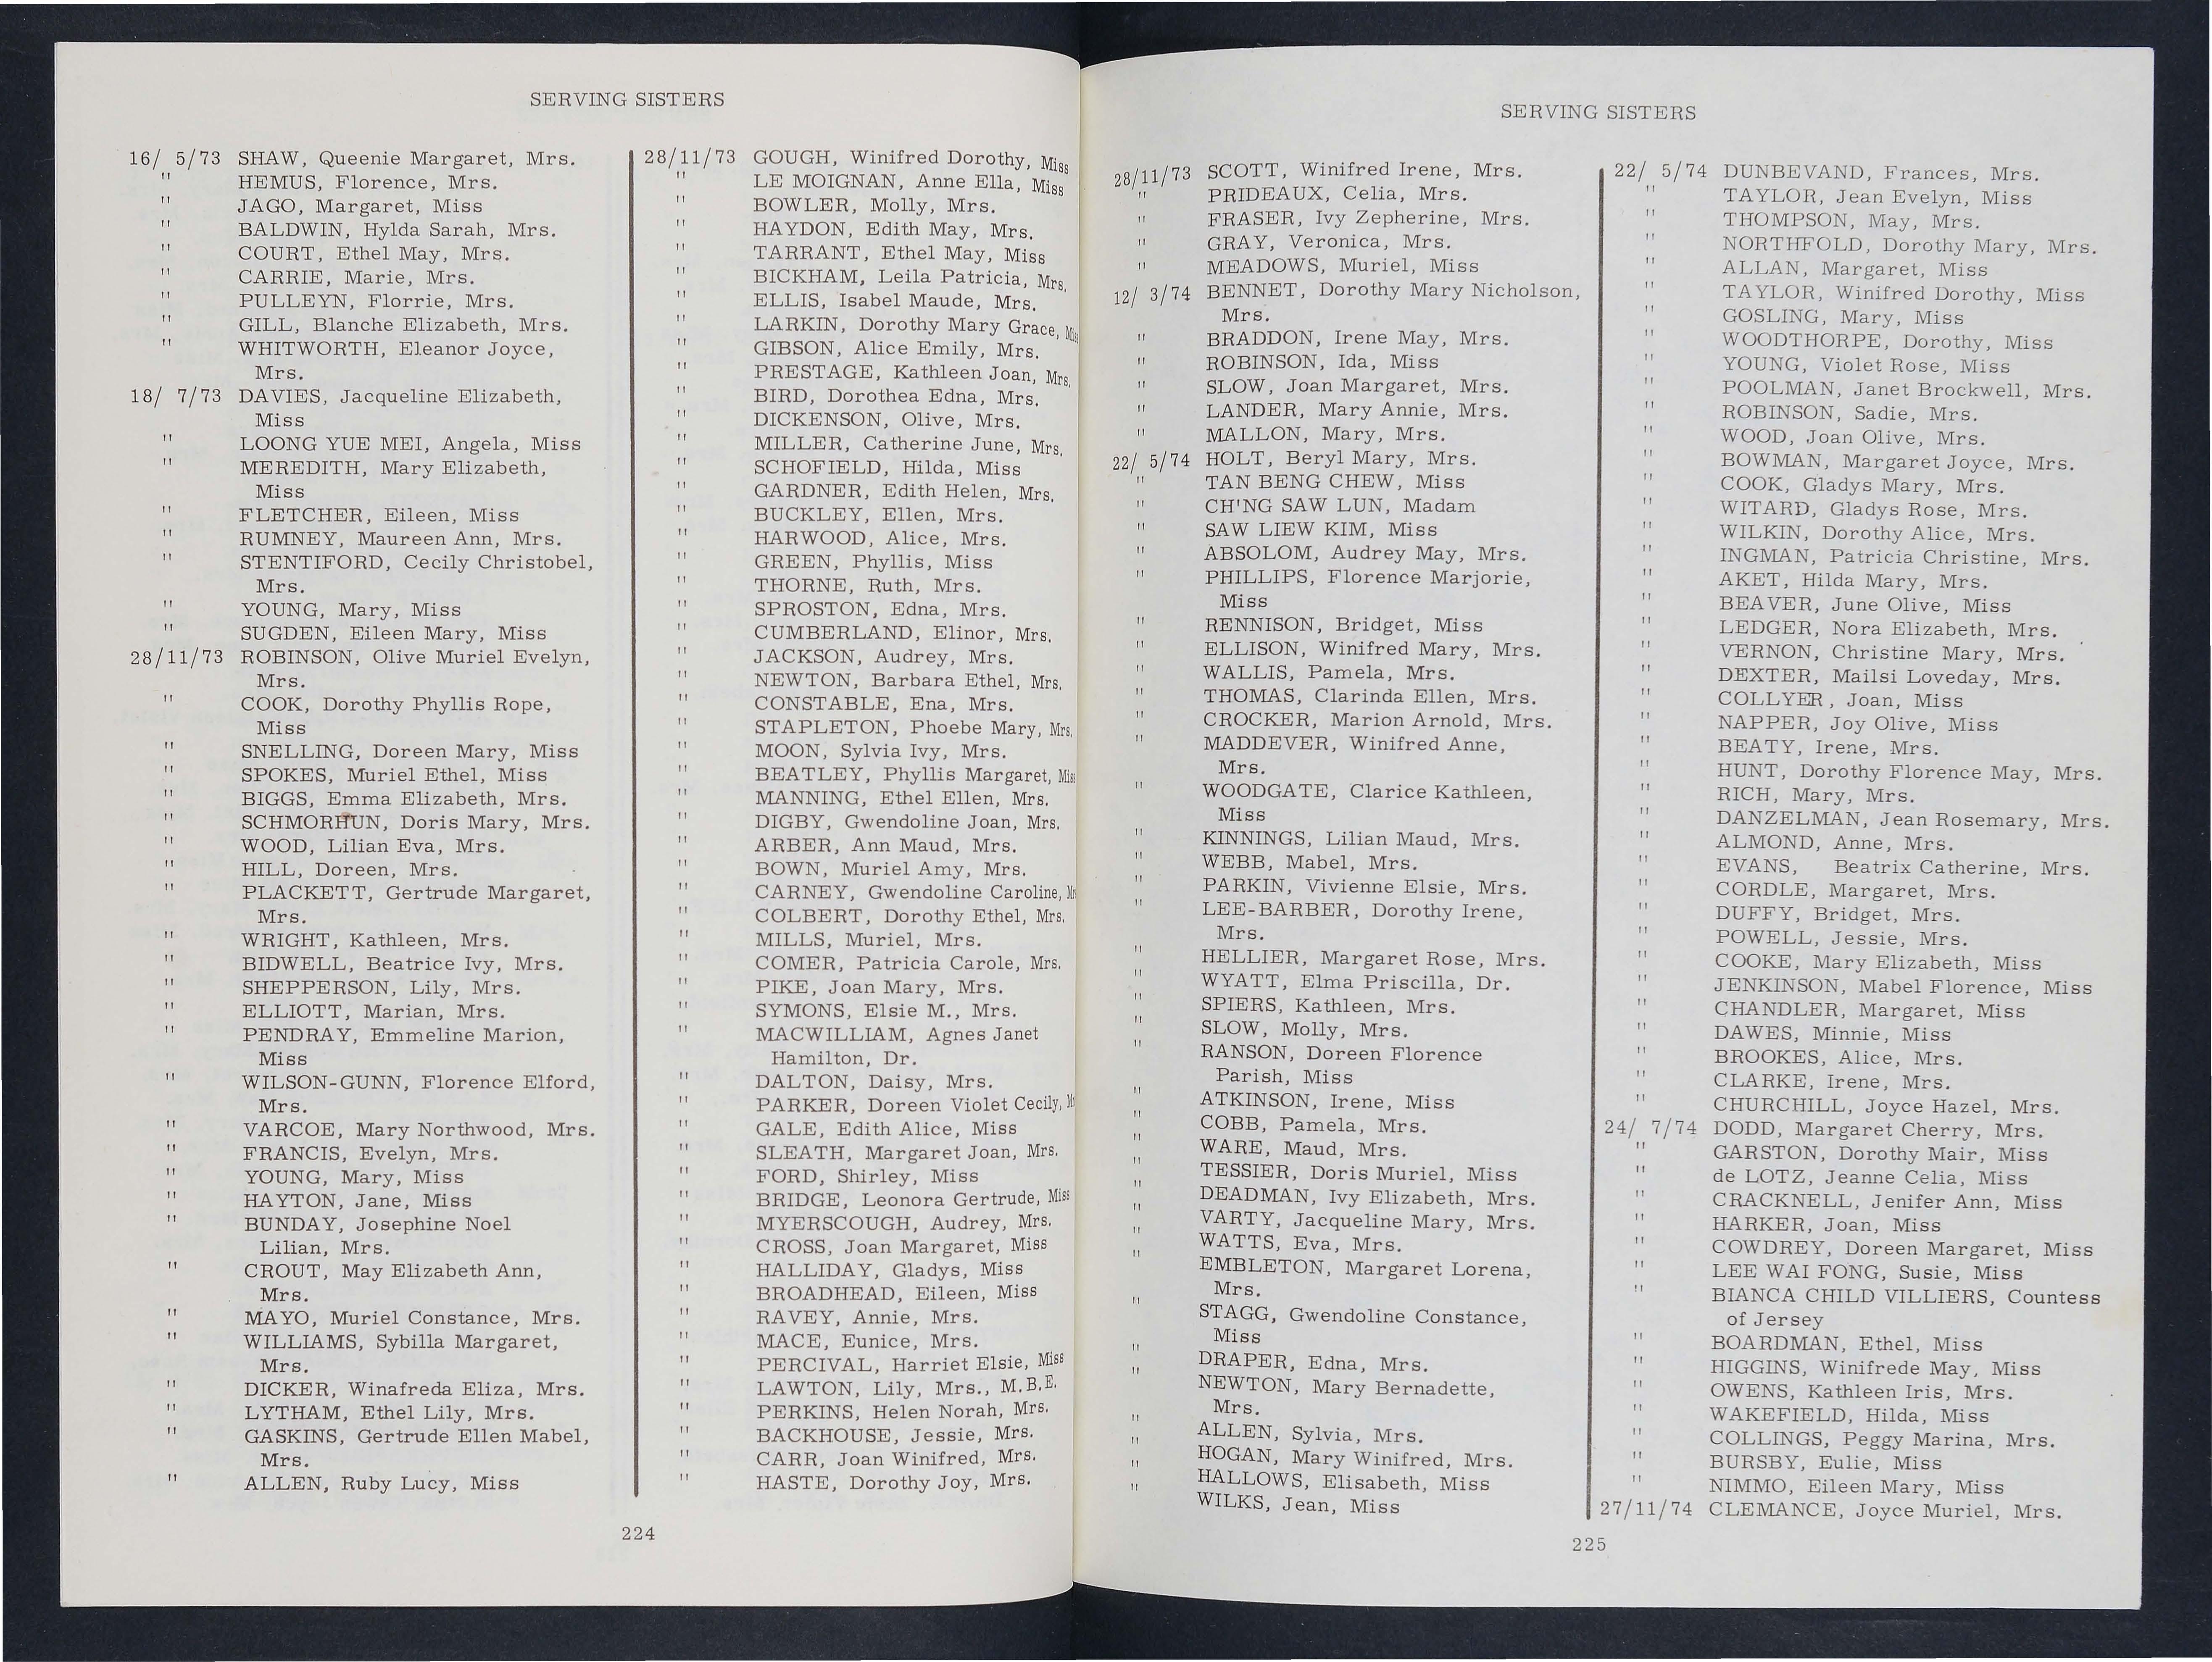 SERVING SISTERS
16/ 5/73 SHAW, Queenie Margaret, Mrs.
" HEMUS, Florence, Mrs.
" JAGO, Margaret, Miss
" BALDWIN, Hylda Sarah, Mrs.
" COURT, Ethel May, Mrs.
" CARRIE, Marie, Mrs.
" PULLEYN, Florrie, Mrs.
" GILL, Blanche Elizabeth, Mrs.
" WHITWORTH, Eleanor Joyce,
Mrs.
18/ 7/73 DAVIES, Jacqueline Elizabeth,
Miss
" LOONG YUE MEI, Angela, Miss
" MEREDITH, Mary Elizabeth,
Miss
" FLETCHER, Eileen, Miss
" RUMNEY, Maureen Ann, Mrs.
" STENTIFORD, Cecily Christobel,
Mrs.
" YOUNG, Mary, Miss
" SUGDEN, Eileen Mary, Miss
28/11/73 ROBINSON, Olive Muriel Evelyn,
Mrs.
" COOK, Dorothy Phyllis Rope,
Miss
" SNELLING, Doreen Mary, Miss
" SPOKES, Muriel Ethel, Miss
" BIGGS, Emma Elizabeth, Mrs.
" SCHMORHUN, Doris Mary, Mrs.
" WOOD, Lilian Eva, Mrs.
" HILL, Doreen, Mrs.
" PLACKETT, Gertrude Margaret,
Mrs.
" WRIGHT, Kathleen, Mrs.
" BIDWELL, Beatrice Ivy, Mrs.
" SHEPPERSON, Lily, Mrs.
" ELLIOTT, Marian, Mrs.
" PENDRAY, Emmeline Marion,
Miss
" WILSON-GUNN, Florence Elford,
Mrs.
" VARCOE, Mary Northwood, Mrs.
" FRANCIS, Evelyn, Mrs.
" YOUNG, Mary, Miss
" HAYTON, Jane, Miss
" BUNDAY, Josephine Noel
Lilian, Mrs.
" CROUT, May Elizabeth Ann,
Mrs.
" MAYO, Muriel Constance, Mrs.
" WILLIAMS, Sybilla Margaret,
Mrs.
" DICKER, Winafreda Eliza, Mrs.
" LYTHAM, Ethel Lily, Mrs.
" GASKINS, Gertrude Ellen Mabel,
Mrs.
" ALLEN, Ruby Lucy, Miss
28/11/73 GOUGH, Winifred Dorothy, Miss
" LE MOIGNAN, Anne Ella, Miss
" BOWLER, Molly, Mrs.
" HAYDON, Edith May, Mrs.
" TARRANT, Ethel May, Miss
" BICKHAM, Leila Patricia, Mrs.
" ELLIS, Isabel Maude, Mrs.
" LARKIN, Dorothy Mary Grace, Miss
" GIBSON, Alice Emily, Mrs.
" PRESTAGE, Kathleen Joan, Mrs.
" BIRD, Dorothea Edna, Mrs.
" DICKENSON, Olive, Mrs.
" MILLER, Catherine June, Mrs.
" SCHOFIELD, Hilda, Miss
" GARDNER, Edith Helen, Mrs.
" BUCKLEY, Ellen, Mrs.
" HARWOOD, Alice, Mrs.
" GREEN, Phyllis, Miss
" THORNE, Ruth, Mrs.
" SPROSTON, Edna, Mrs.
" CUMBERLAND, Elinor, Mrs.
" JACKSON, Audrey, Mrs.
" NEWTON, Barbara Ethel, Mrs.
" CONSTABLE, Ena, Mrs.
" STAPLETON, Phoebe Mary, Mrs.
" MOON, Sylvia Ivy, Mrs.
" BEATLEY, Phyllis Margaret, Miss
" MANNING, Ethel Ellen, Mrs.
" DIGBY, Gwendoline Joan, Mrs.
" ARBER, Ann Maud, Mrs.
" BOWN, Muriel Amy, Mrs.
" CARNEY, Gwendoline Caroline,
" COLBERT, Dorothy Ethel, Mrs.
" MILLS, Muriel, Mrs.
" COMER, Patricia Carole, Mrs.
" PIKE, Joan Mary, Mrs.
" SYMONS, Elsie M., Mrs.
" MACWILLIAM, Agnes Janet
Hamilton, Dr.
" DALTON, Daisy, Mrs.
" PARKER, Doreen Violet Cecily,
" GALE, Edith Alice, Miss
" SLEATH, Margaret Joan, Mrs.
" FORD, Shirley, Miss
" BRIDGE, Leonora Gertrude, Miss
" MYERSCOUGH, Audrey, Mrs.
" CROSS, Joan Margaret, Miss
" HALLIDAY, Gladys, Miss
" BROADHEAD, Eileen, Miss
" RAVEY, Annie, Mrs.
" MACE, Eunice, Mrs.
" PERCIVAL, Harriet Elsie, Miss
" LAWTON, Lily, Mrs., M.B.E.
" PERKINS, Helen Norah, Mrs.
" BACKHOUSE, Jessie, Mrs.
" CARR, Joan Winifred, Mrs.
" HASTE, Dorothy Joy, Mrs.
224
SERVING SISTERS
28/11/73 SCOTT, Winifred Irene, Mrs.
" PRIDEAUX, Celia, Mrs.
" FRASER, Ivy Zepherine, Mrs.
" GRAY, Veronica, Mrs.
" MEADOWS, Muriel, Miss
12/ 3/74 BENNET, Dorothy Mary Nicholson,
Mrs.
" BRADDON, Irene May, Mrs.
" ROBINSON, Ida, Miss
" SLOW, Joan Margaret, Mrs.
" LANDER, Mary Annie, Mrs.
" MALLON, Mary, Mrs.
22/ 5/74 HOLT, Beryl Mary, Mrs.
" TAN BENG CHEW, Miss
" CH'NG SAW LUN, Madam
" SAW LIEW KIM, Miss
" ABSOLOM, Audrey May, Mrs.
" PHILLIPS, Florence Marjorie,
Miss
" RENNISON, Bridget, Miss
" ELLISON, Winifred Mary, Mrs.
" WALLIS, Pamela, Mrs.
" THOMAS, Clarinda Ellen, Mrs.
" CROCKER, Marion Arnold, Mrs.
" MADDEVER, Winifred Anne,
Mrs.
" WOODGATE, Clarice Kathleen,
Miss
" KINNINGS, Lilian Maud, Mrs.
" WEBB, Mabel, Mrs.
" PARKIN, Vivienne Elsie, Mrs.
" LEE-BARBER, Dorothy Irene,
Mrs.
" HELLIER, Margaret Rose, Mrs.
" WYATT, Elma Priscilla, Dr.
" SPIERS, Kathleen, Mrs.
" SLOW, Molly, Mrs.
" RANSON, Doreen Florence
Parish, Miss
" ATKINSON, Irene, Miss
" COBB, Pamela, Mrs.
" WARE, Maud, Mrs.
" TESSIER, Doris Muriel, Miss
" DEADMAN, Ivy Elizabeth, Mrs.
" VARTY, Jacqueline Mary, Mrs.
" WATTS, Eva, Mrs.
" EMBLETON, Margaret Lorena,
Mrs.
" STAGG, Gwendoline Constance,
Miss
" DRAPER, Edna, Mrs.
" NEWTON, Mary Bernadette,
Mrs.
" ALLEN, Sylvia, Mrs.
" HOGAN, Mary Winifred, Mrs.
" HALLOWS, Elisabeth, Miss
" WILKS, Jean, Miss
22/ 5/74 DUNBEVAND, Frances, Mrs.
" TAYLOR, Jean Evelyn, Miss
" THOMPSON, May, Mrs.
" NORTHFOLD, Dorothy Mary, Mrs.
" ALLAN, Margaret, Miss
" TAYLOR, Winifred Dorothy, Miss
" GOSLING, Mary, Miss
" WOODTHORPE, Dorothy, Miss
" YOUNG, Violet Rose, Miss
" POOLMAN, Janet Brockwell, Mrs.
" ROBINSON, Sadie, Mrs.
" WOOD, Joan Olive, Mrs.
" BOWMAN, Margaret Joyce, Mrs.
" COOK, Gladys Mary, Mrs.
" WITARD, Gladys Rose, Mrs.
" WILKIN, Dorothy Alice, Mrs.
" INGMAN, Patricia Christine, Mrs.
" AKET, Hilda Mary, Mrs.
" BEAVER, June Olive, Miss
" LEDGER, Nora Elizabeth, Mrs.
" VERNON, Christine Mary, Mrs.
" DEXTER, Mailsi Loveday, Mrs.
" COLLYER, Joan, Miss
" NAPPER, Joy Olive, Miss
" BEATY, Irene, Mrs.
" HUNT, Dorothy Florence May, Mrs.
" RICH, Mary, Mrs.
" DANZELMAN, Jean Rosemary, Mrs.
" ALMOND, Anne, Mrs.
" EVANS, Beatrix Catherine, Mrs.
" CORDLE, Margaret, Mrs.
" DUFFY, Bridget, Mrs.
" POWELL, Jessie, Mrs.
" COOKE, Mary Elizabeth, Miss
" JENKINSON, Mabel Florence, Miss
" CHANDLER, Margaret, Miss
" DAWES, Minnie, Miss
" BROOKES, Alice, Mrs.
" CLARKE, Irene, Mrs.
" CHURCHILL, Joyce Hazel, Mrs.
24/ 7/74 DODD, Margaret Cherry, Mrs.
" GARSTON, Dorothy Mair, Miss
" de LOTZ, Jeanne Celia, Miss
" CRACKNELL, Jenifer Ann, Miss
" HARKER, Joan, Miss
" COWDREY, Doreen Margaret, Miss
" LEE WAI FONG, Susie, Miss
" BIANCA CHILD VILLIERS, Countess
of Jersey
" BOARDMAN, Ethel, Miss
" HIGGINS, Winifrede May, Miss
" OWENS, Kathleen Iris, Mrs.
" WAKEFIELD, Hilda, Miss
" COLLINGS, Peggy Marina, Mrs.
" BURSBY, Eulie, Miss
" NIMMO, Eileen Mary, Miss
27/11/74 CLEMANCE, Joyce Muriel, Mrs.
225